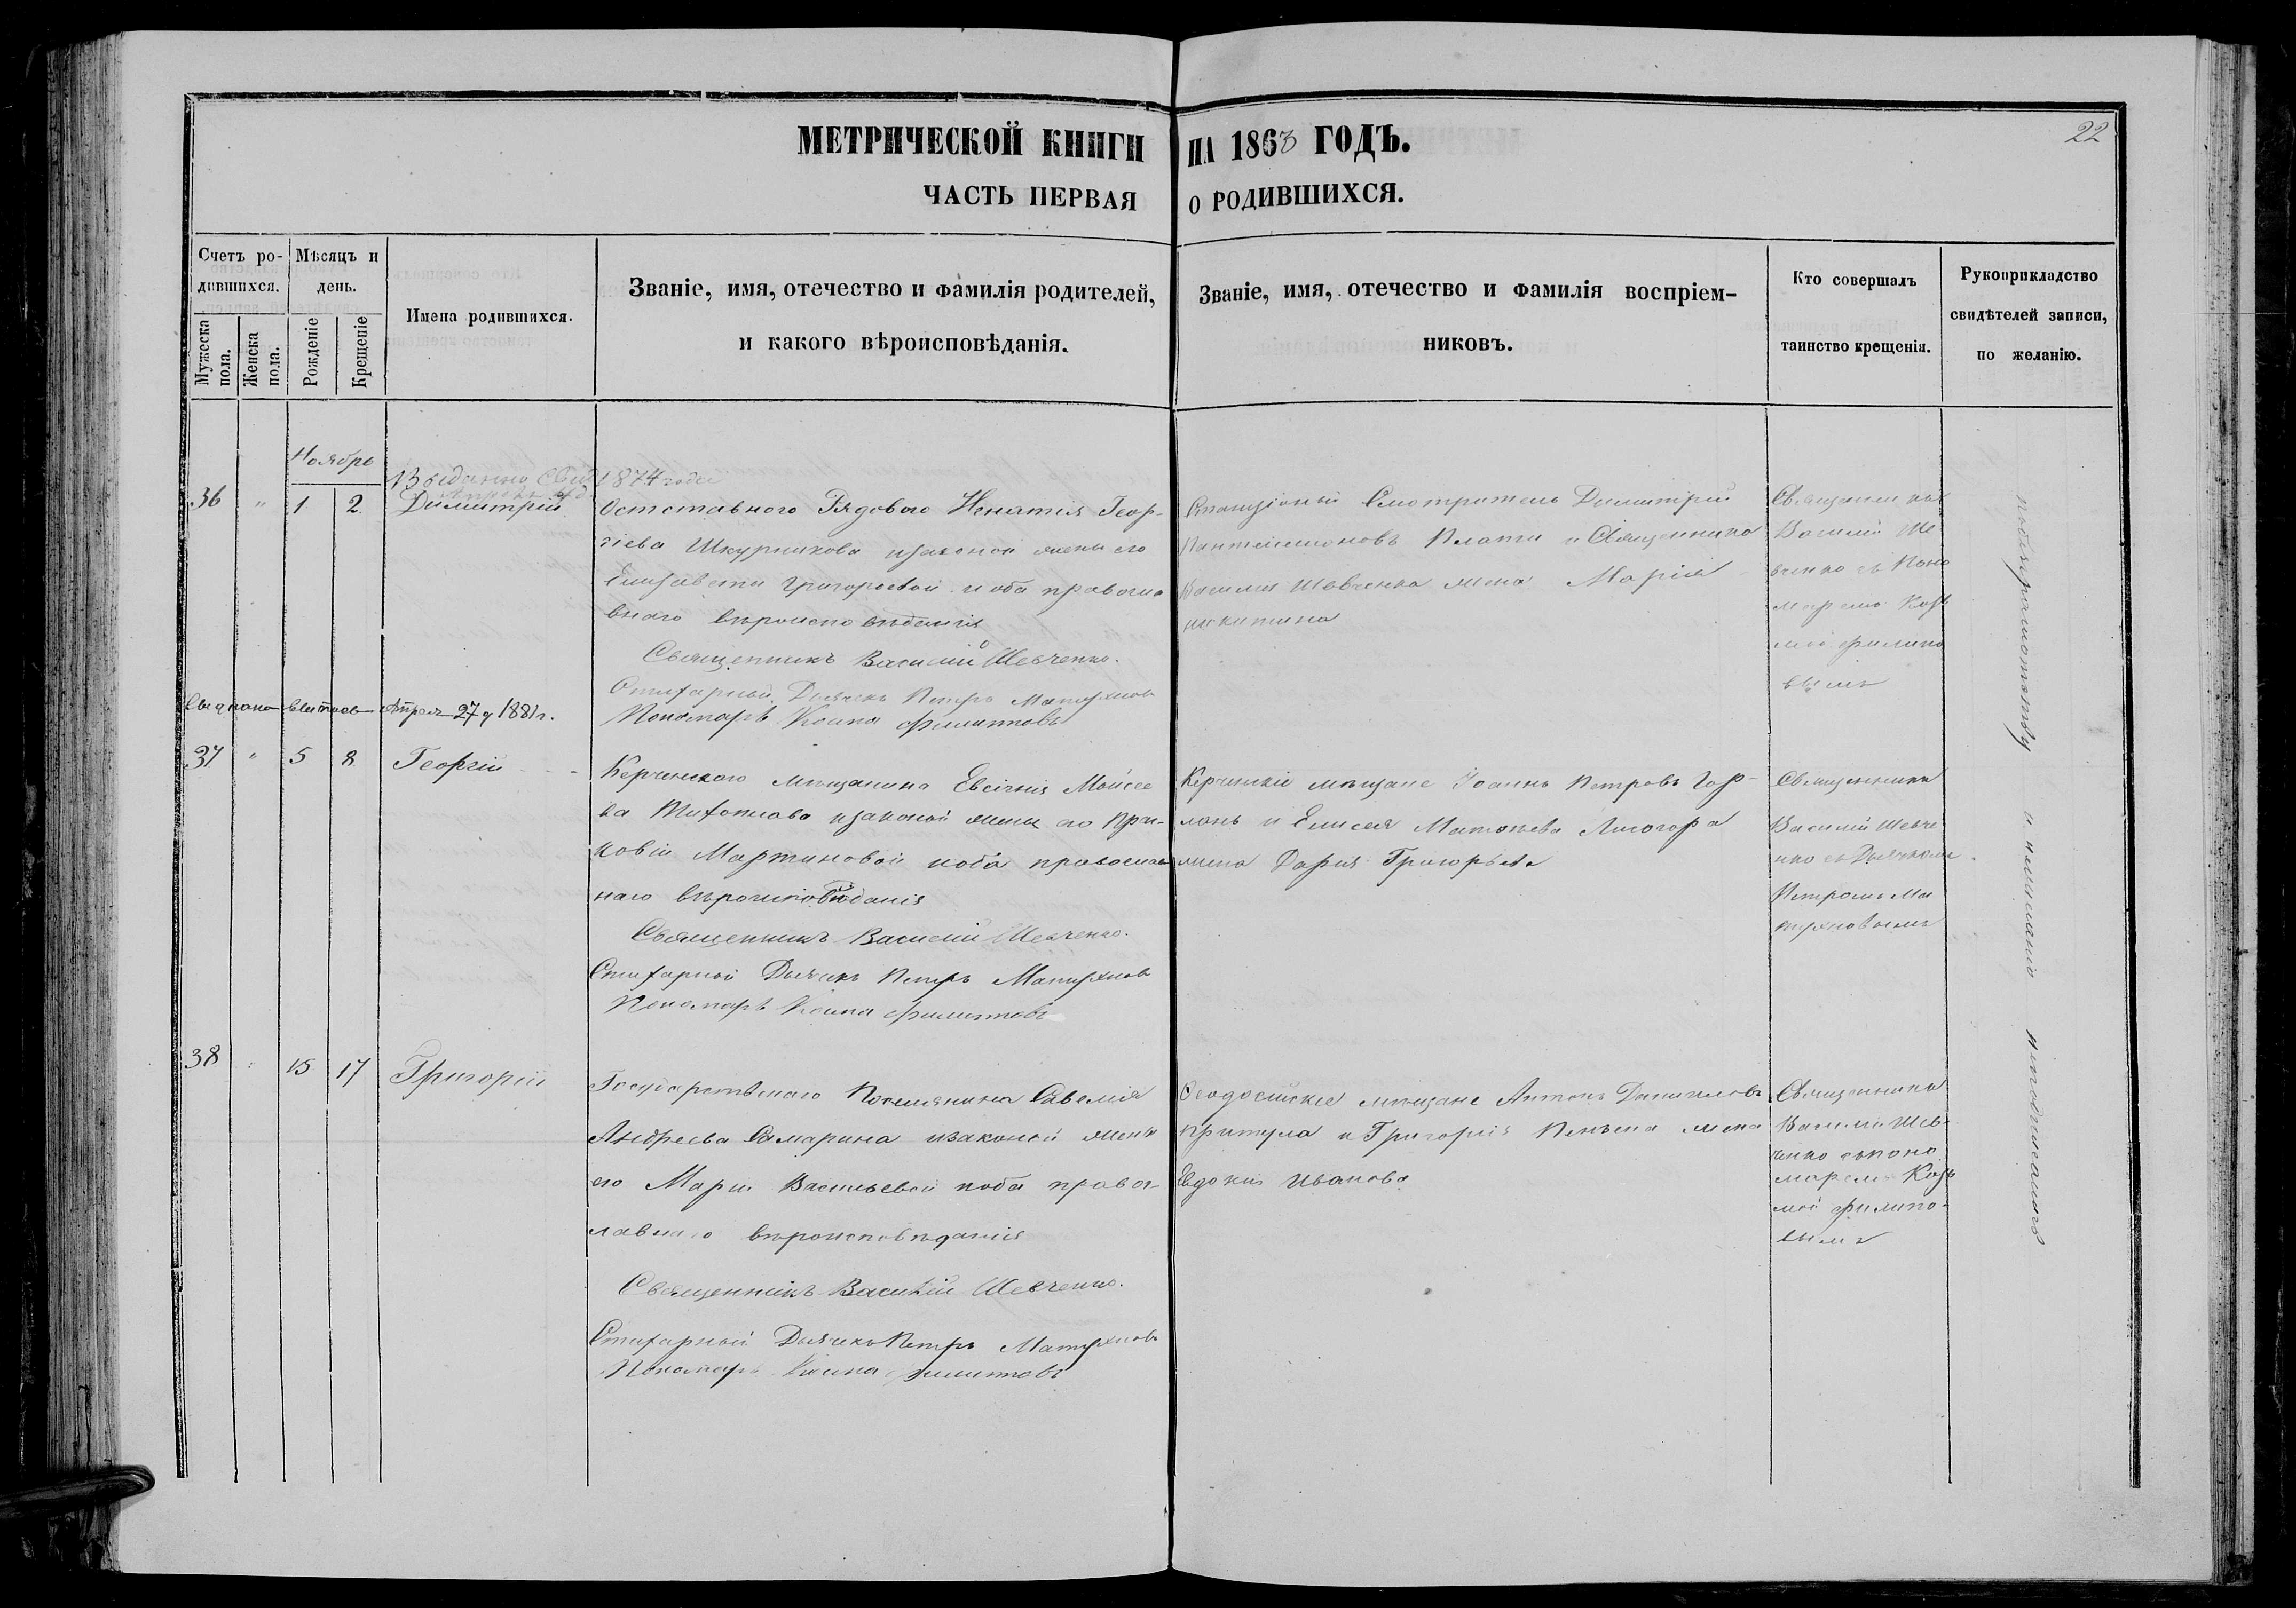 МЕТРИЧЕСКОЙ КНИГИ НА 1863 ГОДЪ.
22
ЧАСТЬ ПЕРВАЯ О РОДИВШИХСЯ.
Счетъ родившихся.
Мужеска пола.
Женска пола.
Мѣсяцъ и день.
Рожденіе
Крещеніе
Имена родившихся.
Званіе, имя, отечество и фамилія родителей,
и какого вѣроисповѣданія.
Званіе, имя, отечество и фамилія воспріем-
никовъ.
Кто совершалъ
таинство крещенія.
Рукоприкладство
свидѣтелей записи,
по желанію.
Ноябрь
Выданно Свид 1874 года
36 " 1 2 Димитрій
Отставного Рядового Игнатія Геор-
гіева Шкурникова изаконой жены его
Елизаветы Григоровой иоба правосла
внаго вѣроисповѣданія
Священникъ Василій Шевченко.
Стихарный Дьячекъ Петръ
Пономарь Косма Филиповъ
Станціоный Смотритель Димитрій
Пантелемоновъ Платы и Священника
Василія Шевченка жена Марія
никитина
Священникъ
Василій Ше
вченко съ Поно
маремъ Козь
мой филипо
вымъ
Апреля 27 д 1881 г.
37 " 5 8 Георгій
Керченскаго мѣщанина Евсігнія Мойсее
ва изаконой жены его
Мартиновой иоба православ
наго вѣроисповѣданія
Священникъ Василій Шевченко.
Стихарный Дьячекъ Петръ
Пономарь Косма Филиповъ
Керчинскіе мѣщане Іоаннъ Петровъ
и Елисея Лисогора
жена Дарія Григорьева
Священникъ
Василій Шевче
нко съ Дьячкомъ
Петромъ
38 15 17 Григорій
Государственаго Поселянина Савелія
Андреева Самарина изаконой жены
его Маріи Васильевой иоба правос-
лавнаго вѣроисповѣданія
Священникъ Василій Шевченко.
Стихарный Дьячекъ Петръ
Пономарь Косма Филиповъ
Ѳеодосійские мѣщане Антонъ Даниловъ
Притула и Григорія жена
Евдокия Иванова
Священникъ
Василій Шев-
ченко съ поно
маремъ Козь
мой филипо-
вымъ